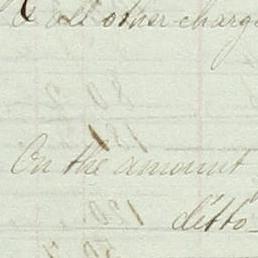 & all other charg
On the amount
ditto